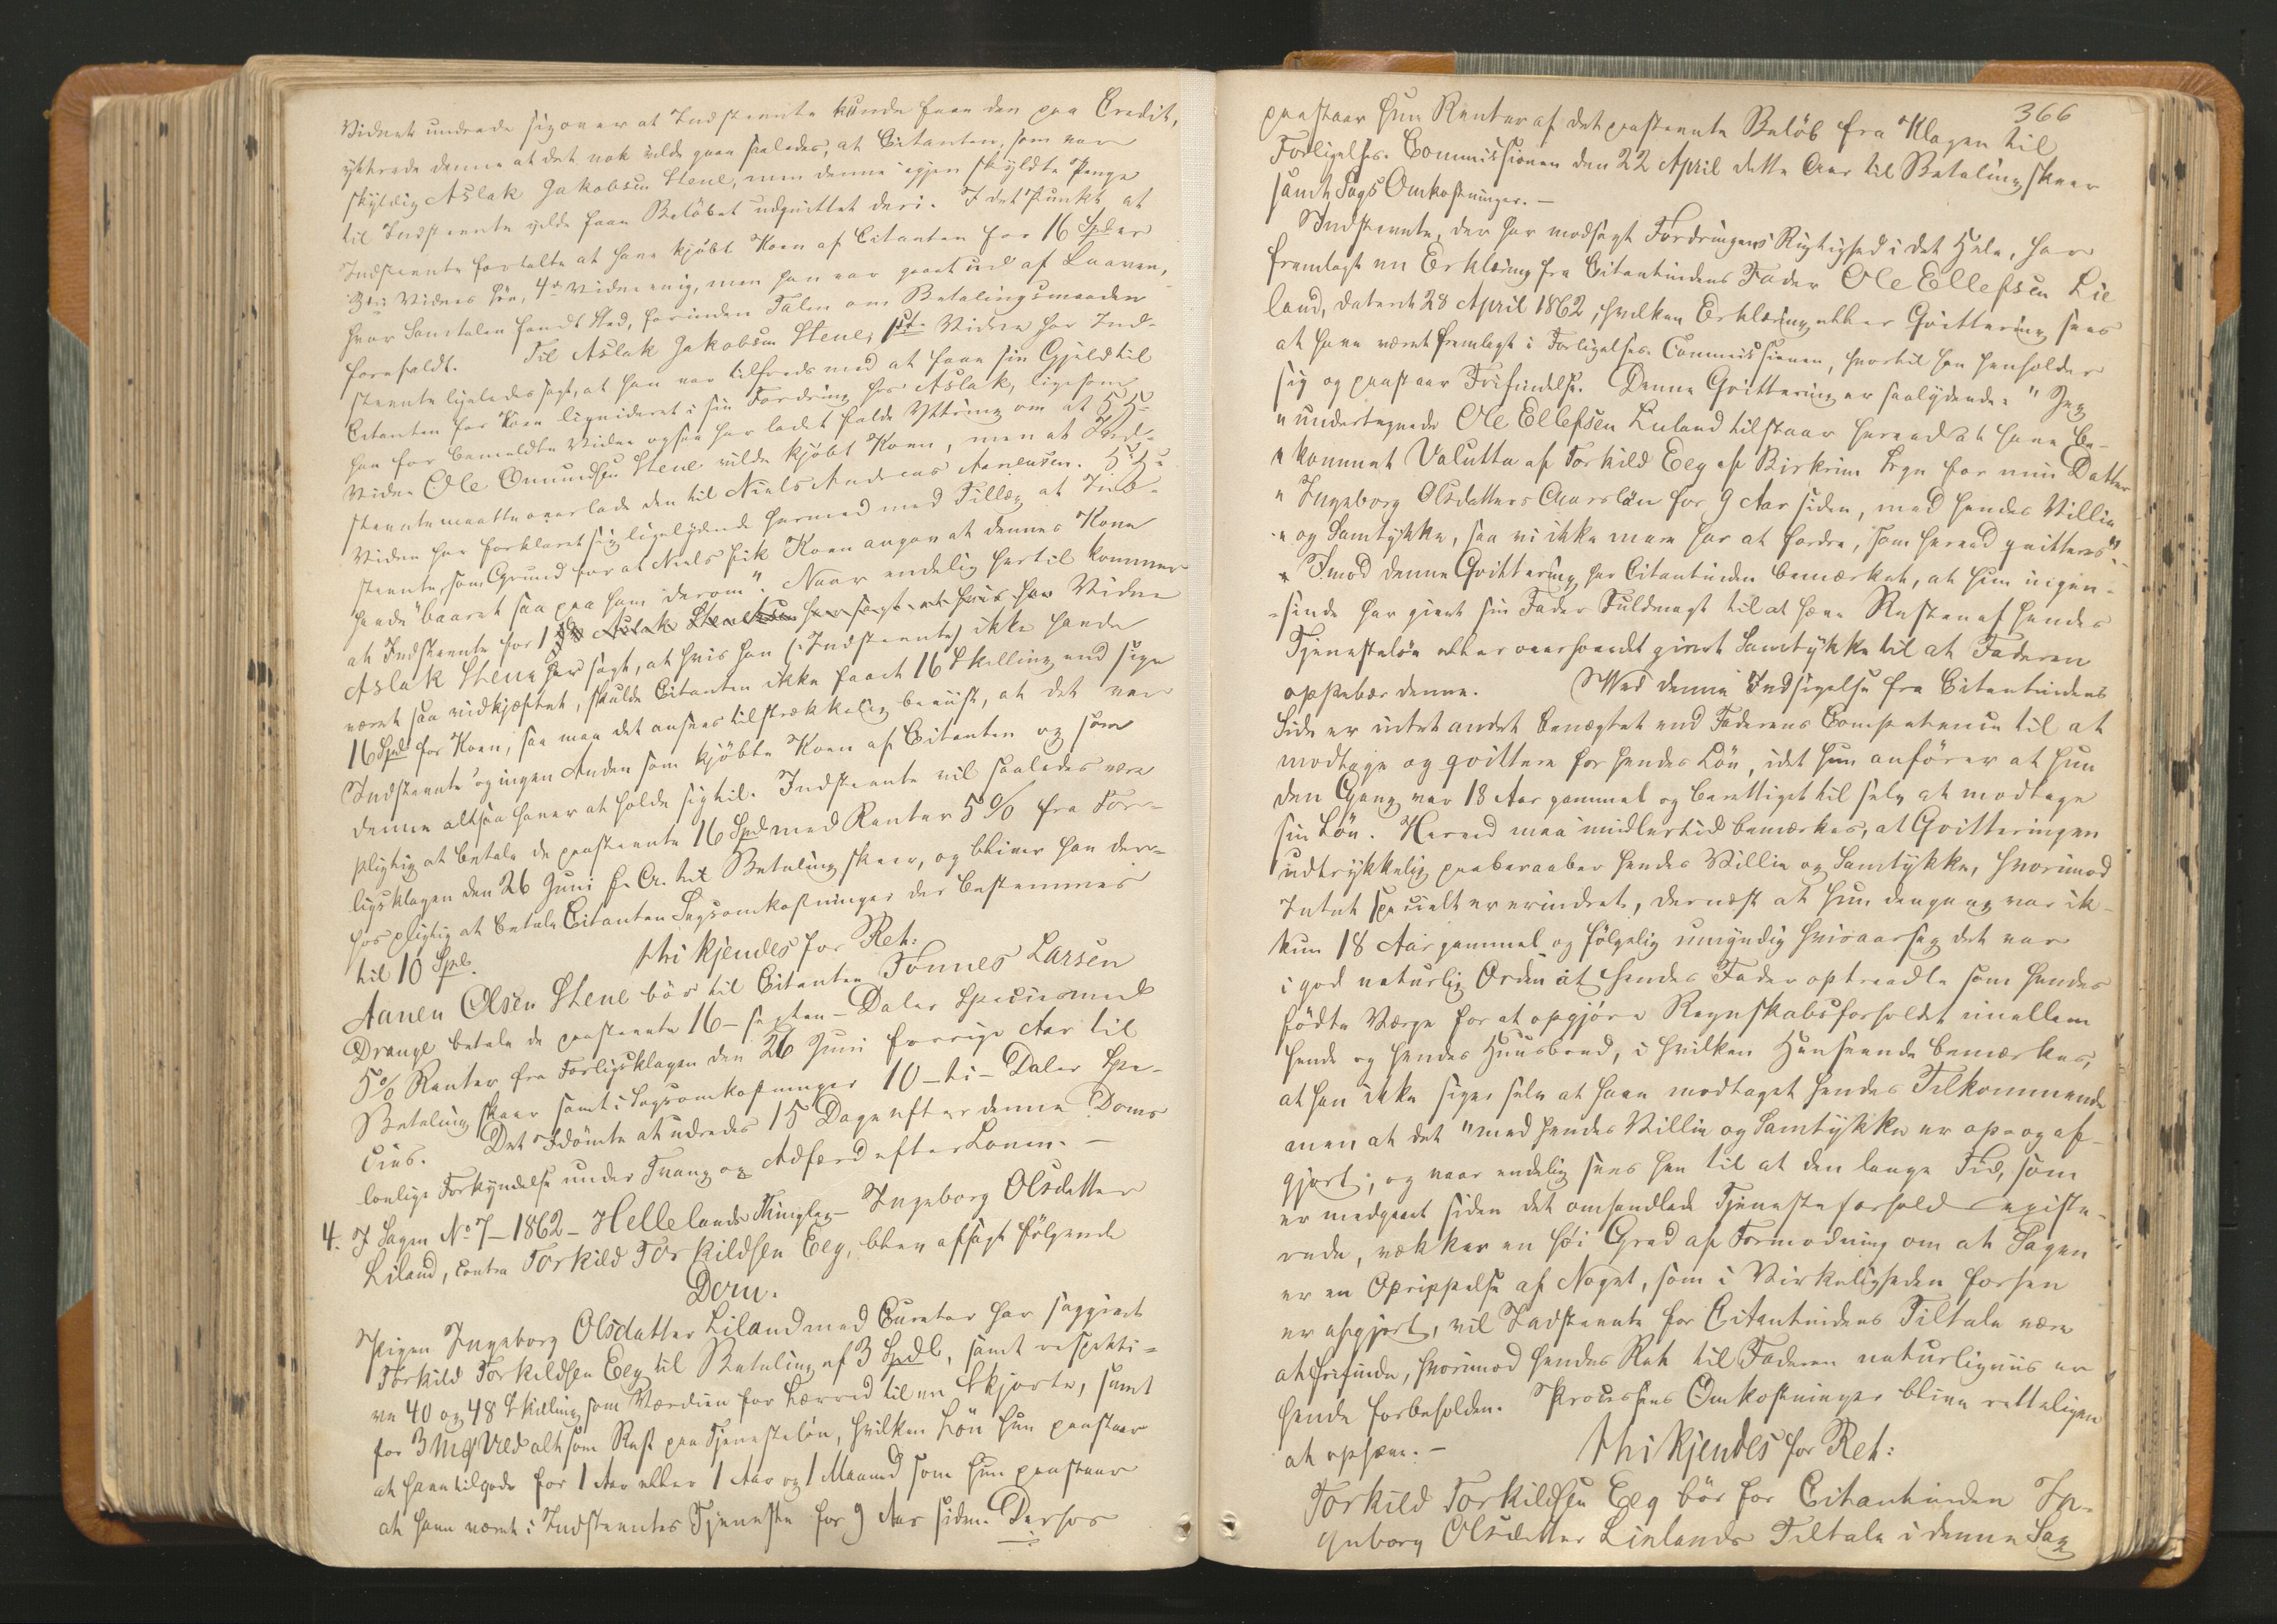 Vidnet undrede sig over at Indstevnte kunde faae den paa Credit,
yttrede denne at det nok vilde gaae saaledes, at Citanten, som var
skyldig Aslak Jakobsen Stene, men denne igjen skyldte Penge
til Indstevnte vilde faae Beløbet udqvittet deri. I det Punkt at
Indstevnte fortalte at have kjøbt Koen af Citanten for 16 Spd er
3die Vidnes Søn, 4de Vidne enig, men han var gaaet ud af Laaven,
hvor Samtalen fandt Sted, forinden Talen om Betalingsmaaden
forefaldt. Til Aslak Jakobsen Stene, 1ste Vidne har Ind-
stevnte ligeledes sagt, at han var tilfreds med at faae sin Gjeld til
Citanten for Koen liqvideret i sin Fordring hos Aslak, ligesom
han for bemeldte Vidne ogsaa har ladet falde Yttring om at 5te
Vidne Ole Omundsen Stene vilde kjøbt Koen, men at Ind-
stevnte maatte overlade den til Niels Andreas Aanensen. 5te
Vidne har forklaret sig ligelydende hermed med Tillæg at Ind-
stevnte, som Grund for at Niels fik Koen angav at dennes Kone
havde "baaret saa paa ham derom". Naar endelig hertil kommer
at Indstevnte for 1ste Vidne
Aslak Stene har sagt, at hvis han (: Indstevnte) ikke havde
været saa vidkjæftet, skulde Citanten ikke faaet 16 Skilling end sige
16 Spd for Koen, saa maa det ansees tilstrækkelig beviist, at det var
Indstevnte og ingen Anden som kjøbte Koen af Citanten og som
denne altsaa haver at holde sig til. Indstevnte vil saaledes være
pligtig at betale de paastevnte 16 Spd med Renter 5 % fra For-
ligsklagen den 26 Juni f. A. til Betaling skeer, og bliver han der-
hos pligtig at betale Citanten Sagsomkostninger der bestemmes
til 10 Spd.
thi kjendes for Ret:
Aanen Olsen Stene bør til Citanten Tønnes Larsen
Drange betale de paastevnte 16 - sexten - Daler Species med
5 % Renter fra Forligsklagen den 26 Juni forrige Aar til
Betaling skeer samt i Sagsomkostninger 10 - ti - Daler Spe-
cies. Det Idømte at udredes 15 Dage efter denne Doms
lovlige Forkyndelse under Tvang og Adfærd efter Loven. -
4. I Sagen No 7 - 1862 - Hellelands Thinglag - Ingeborg Olsdatter
Liland, contra Torkild Torkildsen Eeg, blev afsagt følgende
Dom.
Pigen Ingeborg Olsdatter Liland med Curator har sagsøgt
Torkild Torkildsen Eeg til Betaling af 3 Spdl, samt respekti-
ve 40 og 48 Skilling som Værdien for Lærred til en Skjorte, samt
for 3 Mk Uld alt som Rest paa Tjenesteløn, hvilken Løn hun paastaar
at have tilgode for 1 Aar eller 1 Aar og 1 Maaned som hun paastaar
at have været i Indstevntes Tjeneste for 9 Aar siden. Derhos
366
paastaar hun Renter af det paastevnte Beløb fra Klagen til
Forligelses-Commissionen den 22 April dette Aar til Betaling skeer
samt Sags Omkostninger. -
Indstevnte, der har modsagt Fordringens Rigtighed i det Hele, har
fremlagt en Erklæring fra Citantindens Fader Ole Ellefsen Lie
land, dateret 28 April 1862, hvilken Erklæring eller Qvittering sees
at have været fremlagt i Forligelses-Commissionen, hvortil han henholder
sig og paastaar Frifindelse. Denne Qvittering er saalydende: "Jeg
" undertegnede Ole Ellefsen Lieland tilstaar herved at have be-
" kommet Valutta af Torkild Eeg af Birkrim Sogn for min Datter
" Ingeborg Olsdatters Aarsløn for 9 Aar siden, med hendes Villie
" og Samtykke, saa vi ikke mere har at fordre, som herved qvitteres".
Imod denne Qvittering har Citantinden bemærket, at hun ingen-
sinde har givet sin Fader Fuldmagt til at hæve Resten af hendes
Tjenesteløn eller overhovedet givet Samtykke til at Faderen
oppebær denne. Ved denne Indsigelse fra Citantindens
Side er intet andet benægtet end Faderens Competence til at
modtage og qvittere for hendes Løn, idet hun anfører at hun
den Gang var 18 Aar gammel og berettiget til selv at modtage
sin Løn. Herved maa imidlertid bemærkes, at Qvitteringen
udtrykkelig paaberaaber hendes Villie og Samtykke, hvorimod
Intet specielt er erindret, dernæst at hun dengang var ik-
kun 18 Aar gammel og følgelig umyndig hvisaarsag det var
i god naturlig Orden at hendes Fader optraadte som hendes
fødte Værge for at opgjøre Regnskabsforholdet imellem
hende og hendes Huusbond, i hvilken Henseende bemærkes,
at han ikke siger selv at have modtaget hendes Tilkommende
men at det "med hendes Villie og Samtykke er op- og af-
gjort; og naar endelig sees hen til at den lange Tid, som
er medgaaet siden det omhandlede Tjenesteforhold existe-
rede, vækker en høi Grad af Formodning om at Sagen
er en Oprippelse af Noget, som i Virkeligheden forhen
er afgjort, vil Indstevnte for Citantindens Tiltale være
at frifinde, hvorimod hendes Ret til Faderen naturligviis er
hende forbeholden. Processens Omkostninger blive retteligen
at ophæve. -
thi kjendes for Ret:
Torkild Torkildsen Eeg bør for Citantinden In-
geborg Olsdatter Lielands Tiltale i denne Sag